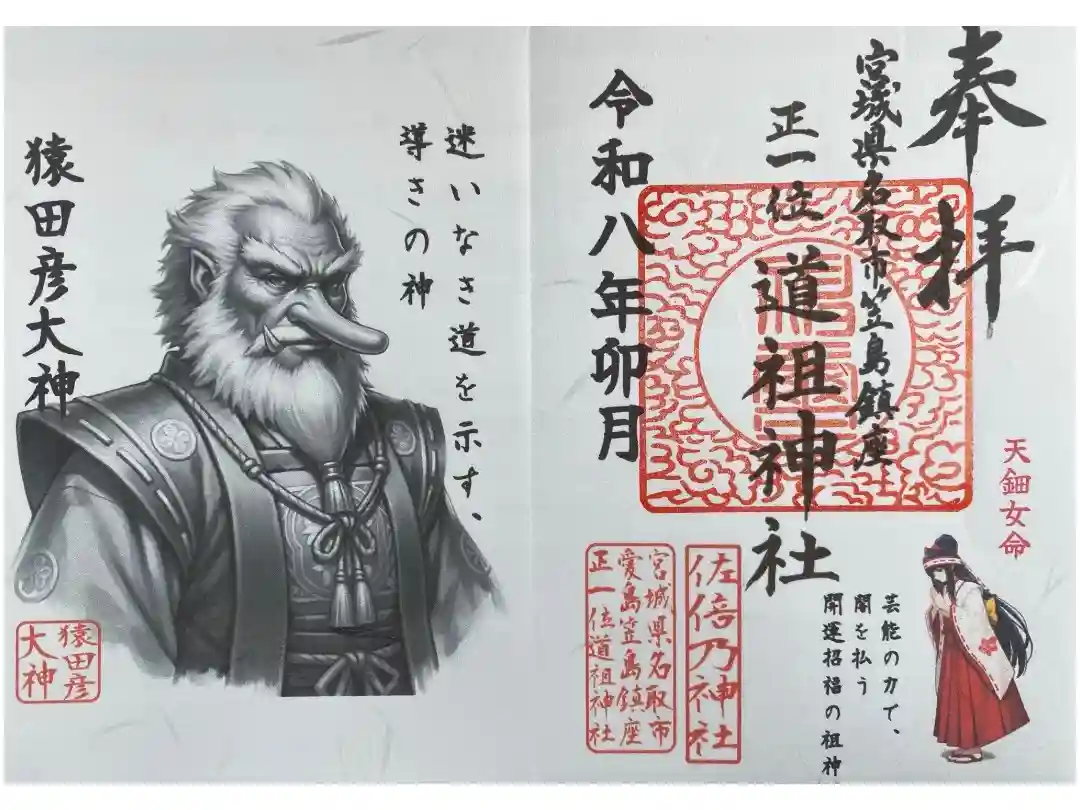 奉拝
宮城県名取市笠島鎮座
正一位
道祖神社
令和八年卯月
天鈿女命
芸能の力で、
闇を払う
開運招福の祖神
佐倍乃神社
宮城県名取市
愛島笠島鎮座
正一位道祖神社
迷いなき道を示す、
導きの神
猿田彦大神
猿田彦
大神